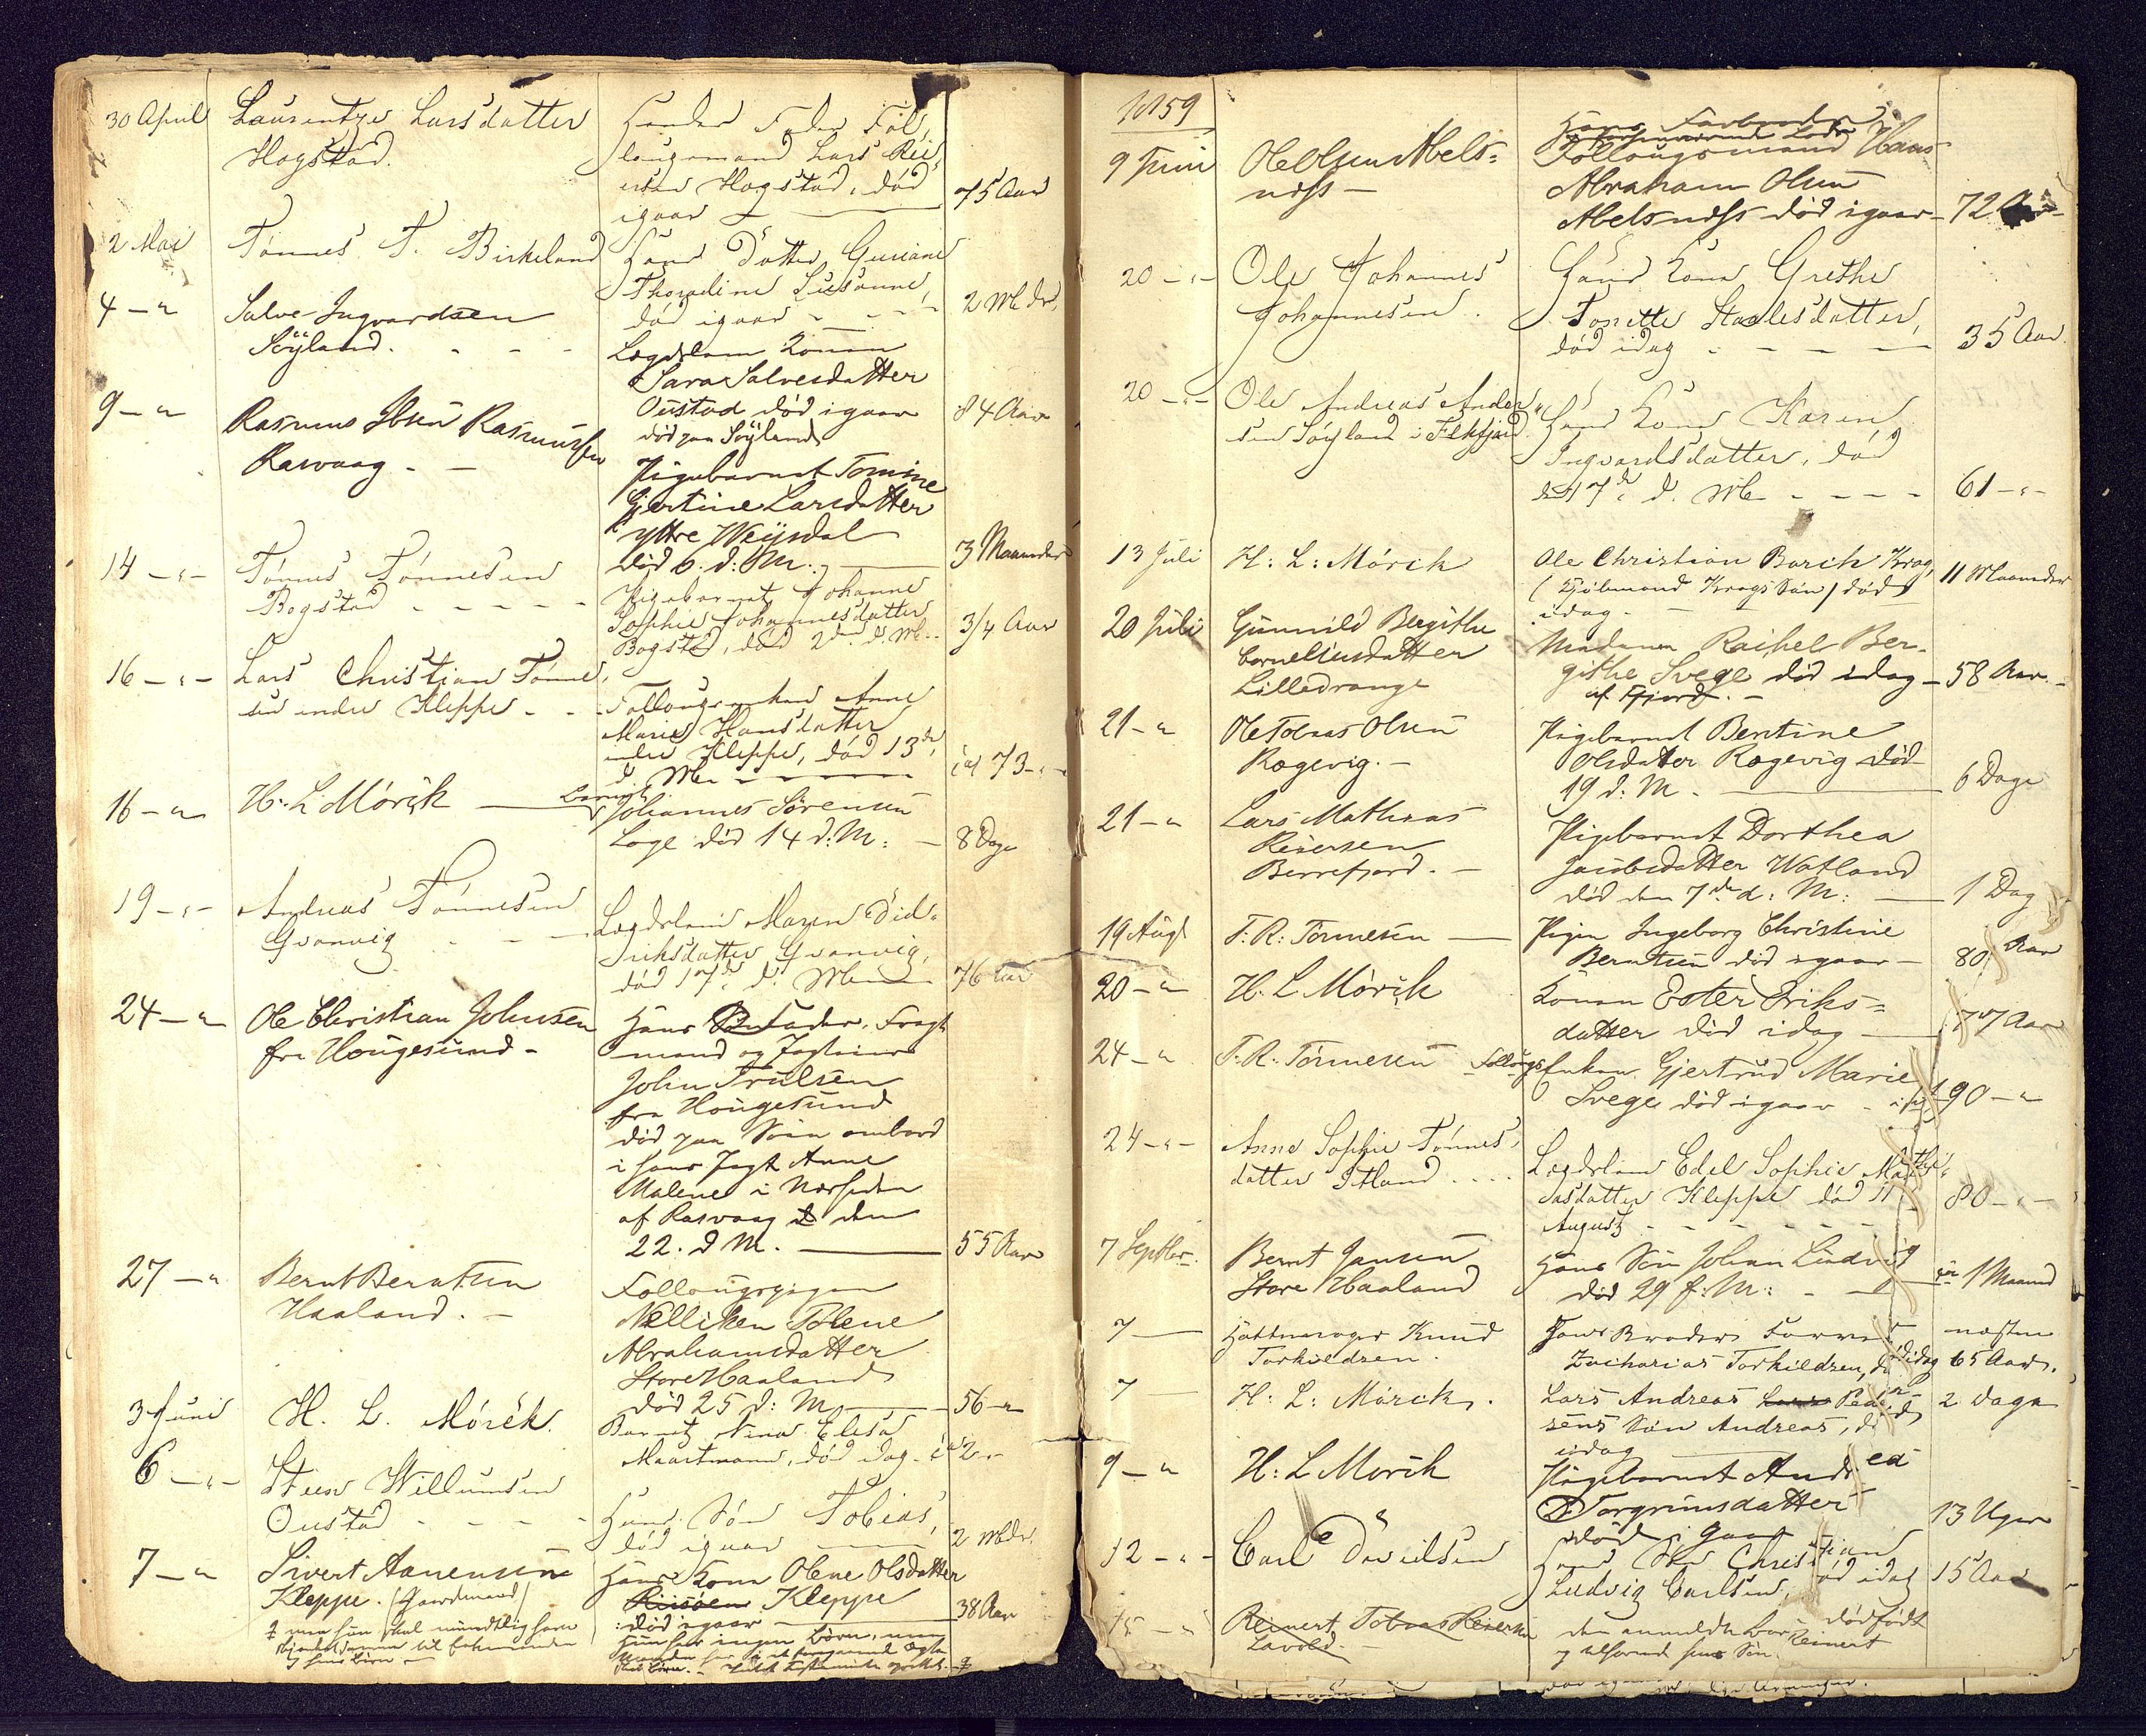 30 April Laurentze Larsdatter
Hogstad.
Hendes Fader Fol,,
lougsmand Lars Rei,,
ersen Hogstad, død
igaar — 75 Aar
2 Mai Tønnes T. Birkeland
Hans Datter Guriane
Thoradine Susanne,
død igaar - - - 2 Mdr.
4 — " Salve Ingvardsen
Søyland. - - -
Lægdslem Konen
Sara Salvesdatter
Oustad død igaar 84 Aar
død paa Søyland
9 — " Rasmus Ibsen Rasmussen
Rasvaag - —
Pigebarnet Tomine
Gjertine Larsdatter
yttre Weÿsdal
død 6. d: M: — 3 Maaneder
14 — " — Tønnes Tønnesen
Bogstad - - - - -
Pigebarnet Johanne
Sophie Johannesdatter
Bogstad, død 2den d. M. - 3/4 Aar
16 — " — Lars Christian Tønne,,
sen indre Kleppe - - -
Follougsenken Anne
Marie Hansdatter
indre Kleppe, død 13de
d. M. - - - - - 73 - " -
16 — " H: L Mørck — Barnet
Johannes Sørensen
Loge død 14 d: M: — 8 Dage
19 — " — Andreas Tønnesen
Gvanvig - - -
Lægdslem Maren Did,,
riksdatter Gvanvig,
død 17de d. M — 76 Aar
24 — " Ole Christian Johnsen
fra Hougesund -
Hans Fader, Fragt
mand og Jagteier
John Trulsen
fra Hougesund
død paa Søen ombord
i hans Jagt Anne
Malene i Nærheden
af Rasvaag den
22. d M. — 55 Aar
27 — " Bernt Berntsen
Haaland. -
Follougspigen
Nelliken Tolene
Abrahamsdatter
Store Haaland
død 25 d: M — 56 — "
3 Juni H. L. Mørck.
Barnet Nina Elisa
Maartmann, død idag - 2 "
6 — " — Steen Willumsen
Oustad - - - -
Hans Søn Tobias,
død igaar — 2 Mdr.
7 — " Sivert Aanensen
Kleppe. (Gaardmand)
Hans Kone Olene Olsdatter
Kleppe
død igaar — 38 Aar
Hun har ingen Børn, men
1859
9 Juni Ole Olsen Abels=
næss —
Hans Farbroder
Follougsmand Hans
Abraham Olsen
Abelsnæss død igaar — 72 Aar
20 — " — Ole Johannes
Johannesen.
Hans Kone Grethe
Tonette Staalesdatter,
død idag - - - — 35 Aar.
20 — " — Ole Andreas Ander,,
sen Søyland i Flekfjord.
Hans Kone Karen
Ingvardsdatter, død
den 17de d. M. - - - - 61 — " —
13 Juli H: L: Mørck
Ole Christian Barch Krog,
(Kjøbmand Krogs Søn) død
idag. — 11 Maaneder
20 Juli Gunnild Bergithe
Corneliusdatter
Lilledrange
Madamen Rachel Ber-
githe Svege død idag — 58 Aar. -
af Fjord. -
21 — " Ole Tobias Olsen
Rægevig. -
Pigebarnet Bentine
Olsdatter Rægevig død
19 d: M. — 6 Dage
21 — " Lars Mathias
Reiersen
Berrefjord. -
Pigebarnet Dorthea
Jacobsdatter Watland
død den 7de d: M: — 1 Dag
19 Augt T: R: Tønnesen —
Pigen Ingeborg Christine
Berntsen død igaar — 80 Aar
20 — " H: L Mørck
Konen Ester Eriks=
datter død idag — 77 Aar
24 — " T: R: Tønnesen Follougs
Enken Gjertrud Marie
Svege død igaar - 90 — "
24 — " — Anne Sophie Tønnes,,
datter Itland . . . .
Lægdslem Edel Sophie Mathi,,
asdatter Kleppe død 11
August - - - - - 80 — " —
7 Septbr. Bernt Jansen
Store Haaland
Hans Søn Johan Ludvig
død 29 f: M: - — 1 Maaned
7 — Hattemager Knud
Torkildsen.
Hans Broder
Zacharias Torkildsen, død idag
næsten
65 Aar.
7 — H: L: Mørck.
Lars Andreas Peder
sens Søn Andreas, død
idag 2 Dage
9 — " H: L Mørck
Pigebarnet Andrea
Torgrimsdatter
død igaar 13 Uger
12 — " — Carl Davidsen
Hans Søn Christian
Ludvig Carlsen, død idag 15 Aar
15 — " Reinert Tobias Reiersen
Lavold. -
den anmeldte var dødfødt
Reinert